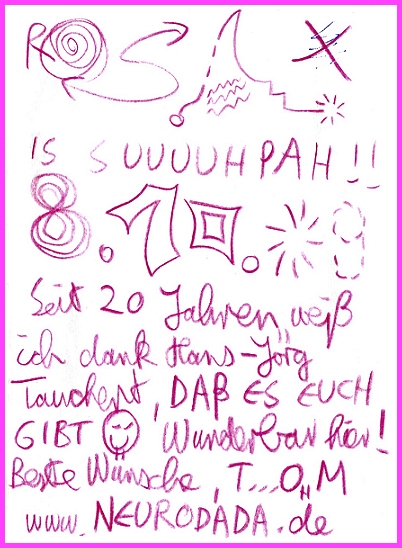 ROSA X
IS SUUUUHPAH!!
8.10.09
Seit 20 Jahren weiß
ich dank Hans-Jörg
Tauchert, DAß ES EUCH
GIBT Wunderbar hier!
Beste Wünsche, T...OHM
www.NEURODADA.de